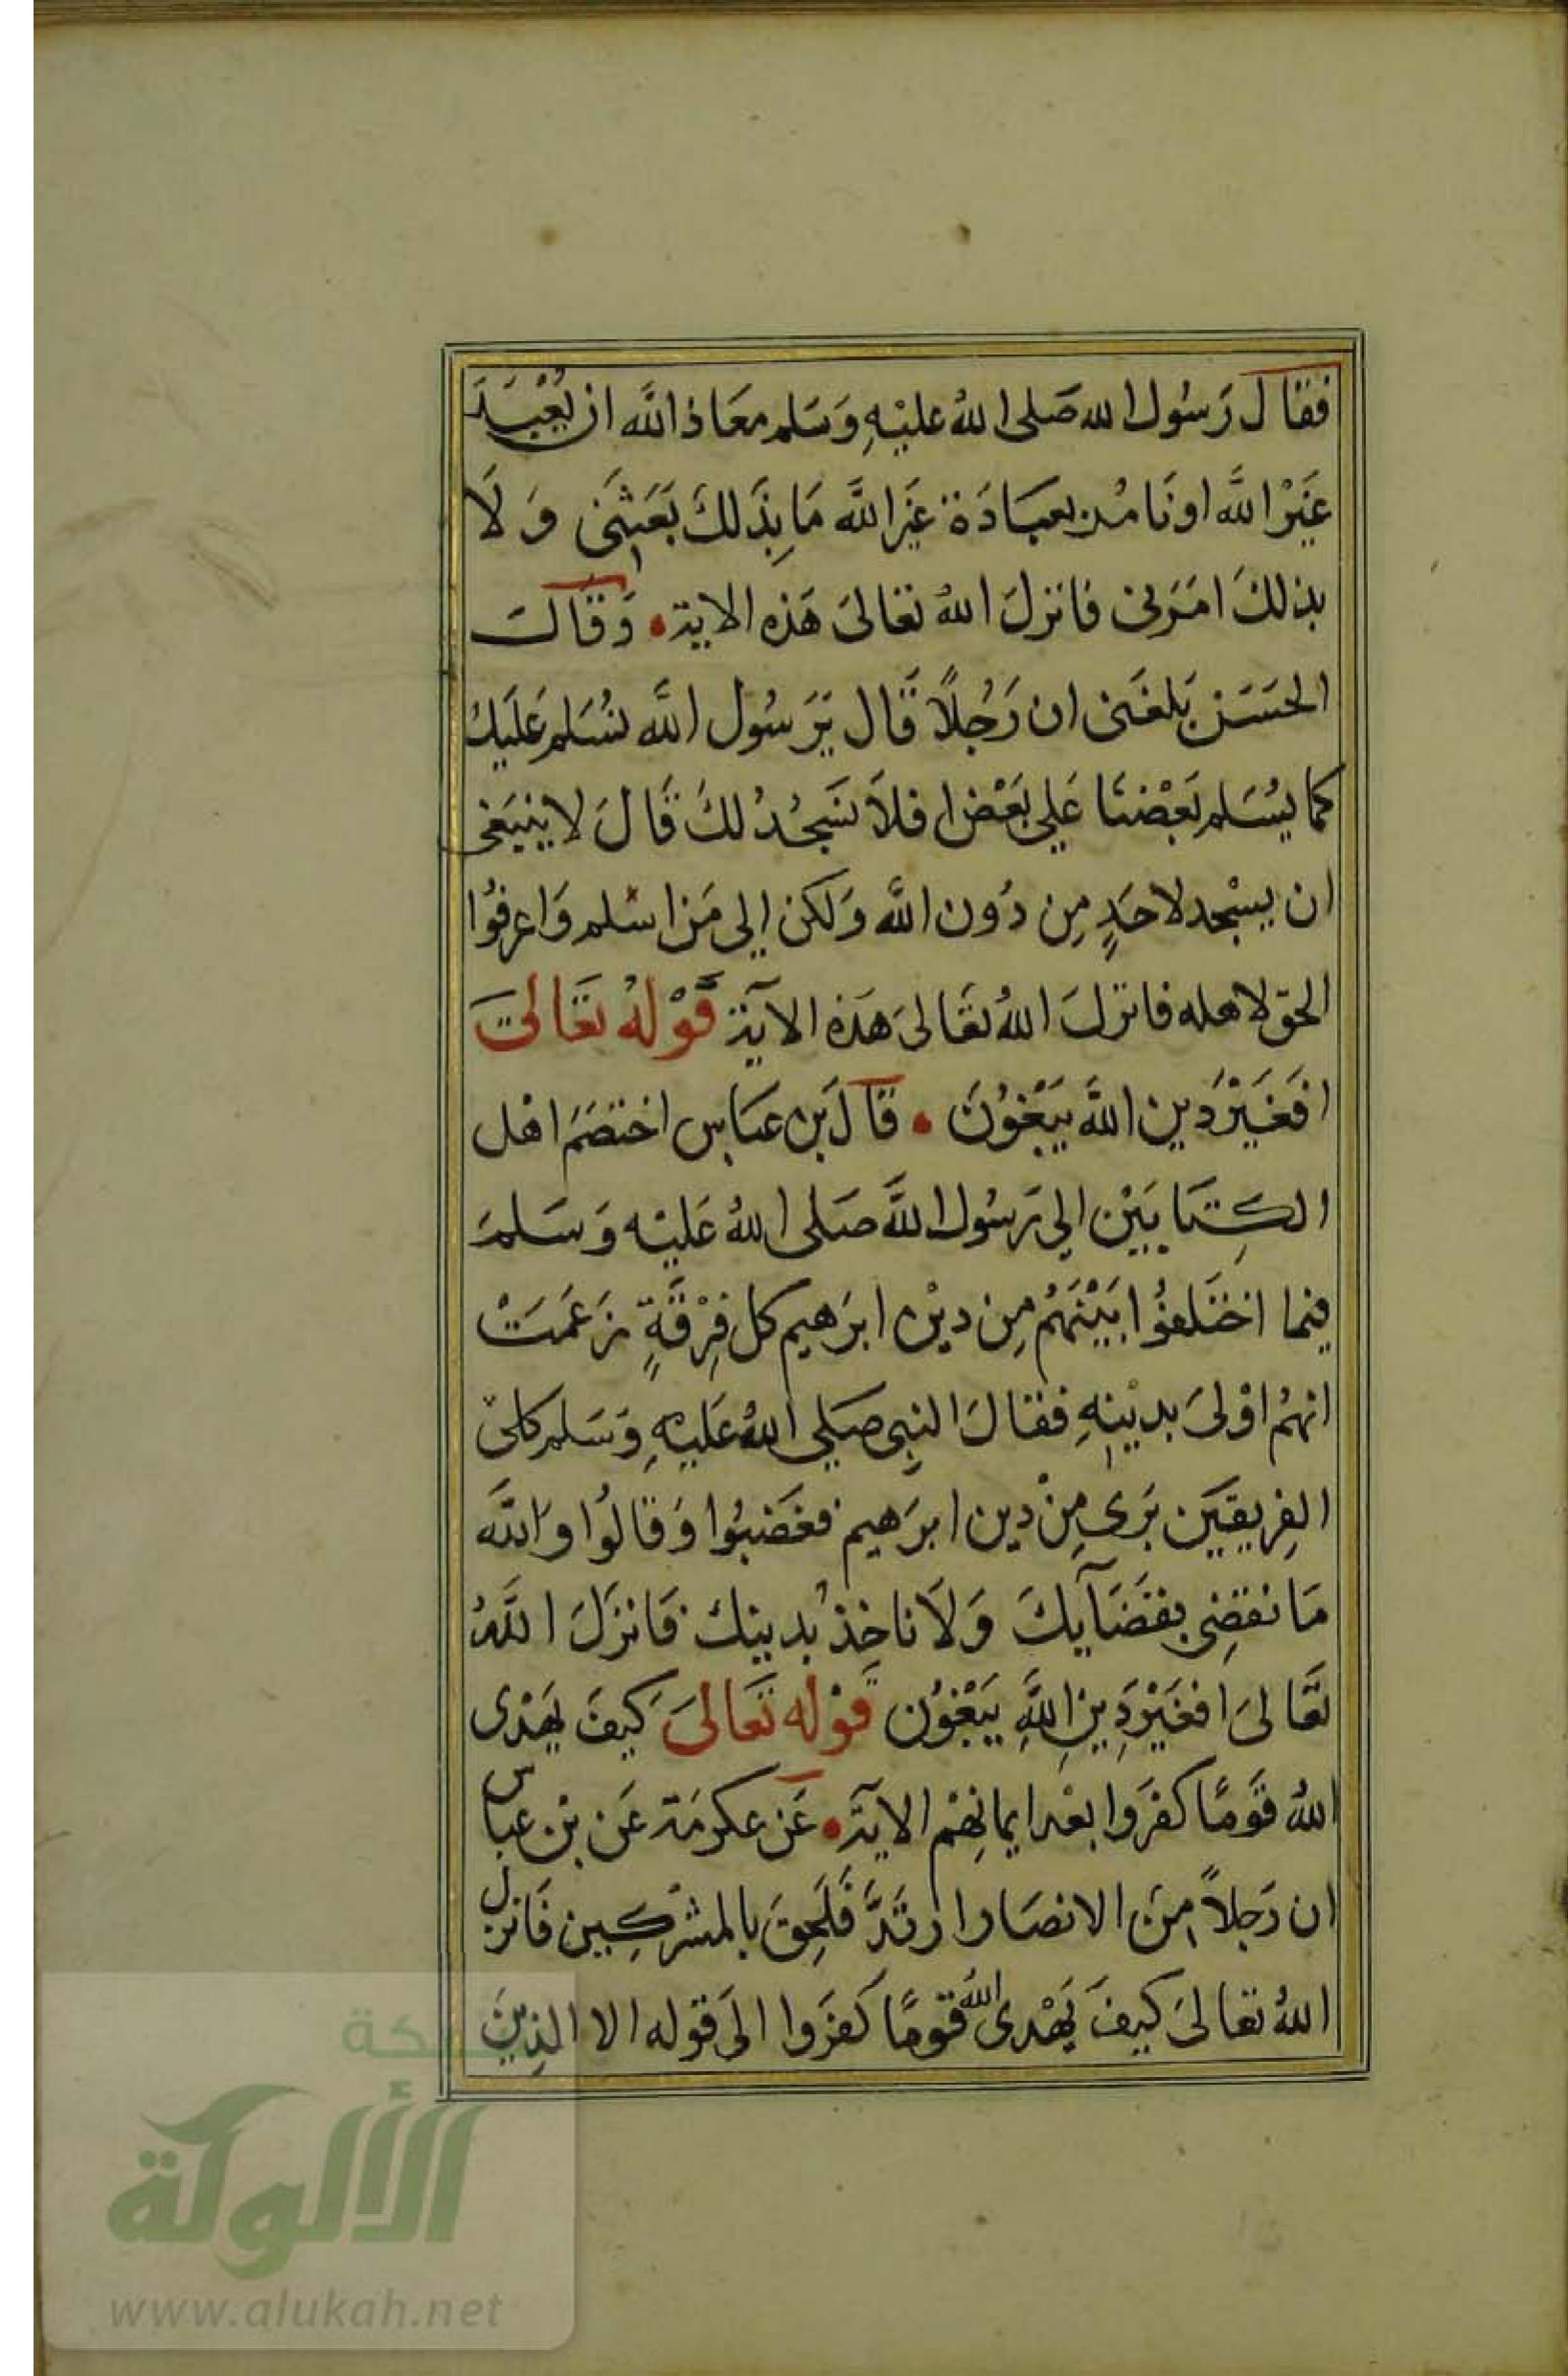 فقال رَسُول الله صَلى اللهُ عليْهِ وَسَلم معَاذ اللَّه ان يُعْبَدَ
غَيْر اللَّه او نَامُر بعبَادَة غيْر اللَّه مَا بِذَلكَ بَعَثنَى وَلَا
بذلكَ امَرَنى فانزلَ اللهُ تعَالىَ هَذه الاية وَقالَ
الحسَن بَلغَنى ان رَجُلاً قَال يَرَسُول اللَّه نسُلم عَلَيك
كما يسُلم بَعْضنَا عَلى بَعْض افلاَ نسَجُدُ لكَ قَالَ لا ينبَغى
ان يسْجد لاحَدٍ مِن دُون اللَّه وَلكن إلى مَن اسْلم وَاعرفُوا
الحق لاهله فانزلَ اللهُ تعَالىَ هَذه الآية قَوْلهُ تعَالىَ
افَغَيْرَ دَين اللَّه يَبْغوُنَ قالَ بن عبَاس اختصَمَ اهْل
الكِتَابَيْن إلى رَسُول اللَّه صَلى اللهُ عَليْه وَسَلمَ
فيما اختَلفوُا بَيْنَهُم مِن ديْن ابرَهيم كل فِرْقَةٍ زَعَمَتْ
انهُم اوْلىَ بديْنِهِ فقالَ النبِى صَلى اللهُ عَليْهِ وَسَلم كلىَ
الفِريقيَن بَرى مِنْ دين ابرَهيم فغضَبُوا وَقالوُا وَاللَّه
مَا نقضِى بقضَآيكَ وَلاَ ناخِذُ بدينك فَانزَلَ اللَّهُ
تعَالىَ افغَيْرَ دِيِن اللَّهِ يَبْغوُن قوْله تعَالىَ كيفَ يَهْدى
اللهُ قَومًا كفَرَوا بعْد ايمانِهْم الايَة عَن عكرمَة عَن بْن عبَاس
ان رَجلاً مِنَ الانصَار ارتَدَّ فَلَحِقَ بالمشْركِين فَانزل
اللهُ تعَالىَ كيفَ يَهْدى اللهُ قومًا كفَرَوا الىَ قوله الا الذِينَ
الألوكة
www.alukah.net